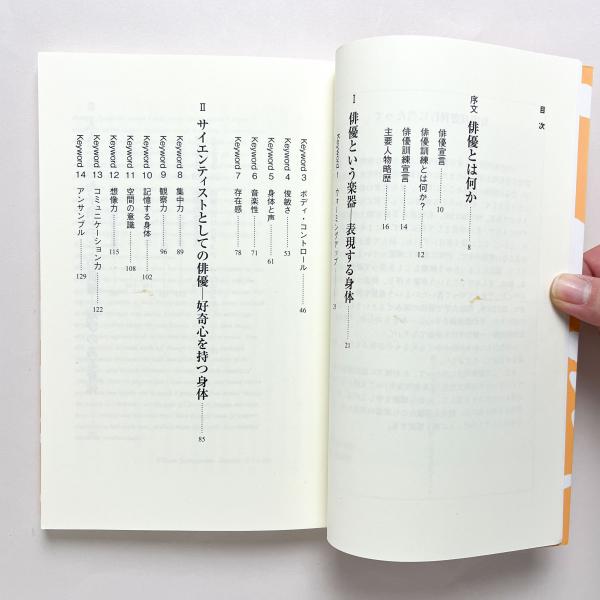 目次
序文 俳優とは何か……8
俳優宣言……10
俳優訓練とは何か?……12
俳優訓練宣言……14
主要人物略歴……16
I 俳優という楽器—表現する身体……21
Keyword 3 ボディ・コントロール……46
Keyword 4 俊敏さ……53
Keyword 5 身体と声……61
Keyword 6 音楽性……71
Keyword 7 存在感……78
II サイエンティストとしての俳優—好奇心を持つ身体……85
Keyword 8 集中力……89
Keyword 9 観察力……96
Keyword 10 記憶する身体……102
Keyword 11 空間の意識……108
Keyword 12 想像力……115
Keyword 13 コミュニケーション力……122
Keyword 14 アンサンブル……129